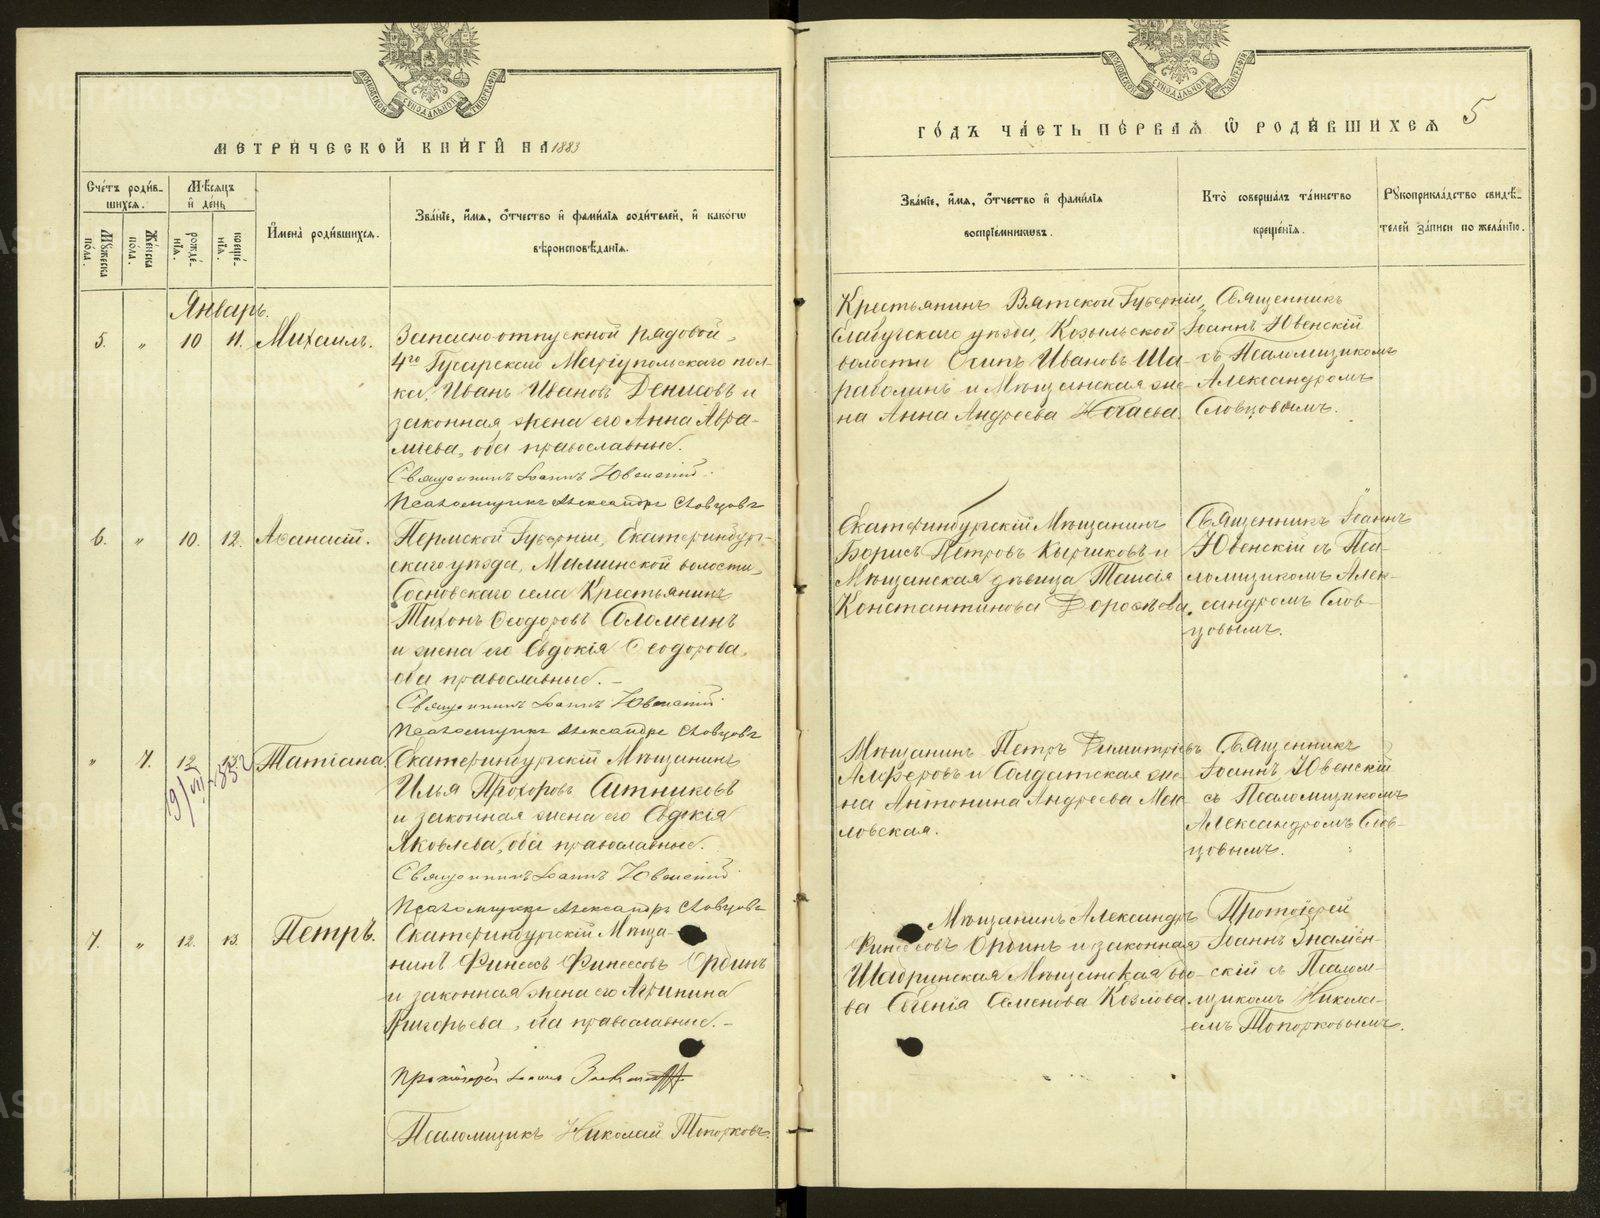 МЕТРИЧЕСКОЙ КНИГИ НА 1883
Счетъ родив-
шихся.
Мѣсяцъ
и день
Мужеска
пола.
Женска
пола.
рожде-
нія.
креще-
нія.
Имена родившихся.
Званіе, имя, отчество и фамилія родителей, и какого
вѣроисповѣданія.
Январь.
5. „ 10 11. Михаилъ.
Запасноотпускной рядовой
4го Гусарскаго Маріупольскаго пол-
ка, Иванъ Ивановъ Денисовъ и
законная жена его Анна Авра-
міева, оба православные.
Священникъ Іоаннъ Ювенскій.
Псаломщикъ Александръ Словцовъ
6. „ 10. 12. Аѳанасій.
Пермской Губерніи, Екатеринбург-
скаго уѣзда, Маминской волости,
Сосновскаго села Крестьянинъ
Тихонъ Ѳеодоровъ Соломеинъ
и жена его Евдокія Ѳеодорова,
оба православные. –
Священникъ Іоаннъ Ювенскій.
Псаломщикъ Александръ Словцовъ
„ 7. 12 Татіана
19/VII
Екатеринбургскій Мѣщанинъ
Илья Прохоровъ Ситниковъ
и законная жена его Евдокія
Яковлева, оба православные.
Священникъ Іоаннъ Ювенскій
Псаломщикъ Александръ Словцовъ
7. „ 12. 13. Петръ.
Екатеринбургскій Мѣща-
нинъ Финеесъ Финеесовъ Ординъ
и законная жена его Агрипина
Григорьева, оба православные. –
Протоіерей Іоаннъ
Псаломщикъ Николай Топорковъ.
5
ГОДЪ ЧАСТЬ ПЕРВАЯ Ѡ РОДИВШИХСЯ
Званіе, имя, отчество и фамилія
воспріемниковъ.
Кто совершалъ таинство
крещенія.
Рукоприкладство свидѣ-
телей записи по желанію.
Крестьянинъ Вятской Губерніи,
Елабугскаго уѣзда, Козыльской
волости Осипъ Ивановъ Ша-
раболинъ и Мѣщанская же-
на Анна Андреева Ногаева.
Священникъ
Іоаннъ Ювенскій
съ Псаломщикомъ
Александромъ
Словцовымъ.
Екатеринбургскій Мѣщанинъ
Борисъ Петровъ Кырчиковъ и
Мѣщанская дѣвица Таисія
Константинова Дорофѣева.
Священникъ Іоаннъ
Ювенскій съ Пса-
ломщикомъ Алек-
сандромъ Слов-
цовымъ.
Мѣщанинъ Петръ Димитріевъ
Алферовъ и Солдатская же-
на Антонина Андреева Мен-
ловская.
Священникъ
Іоаннъ Ювенскій
съ Псаломщикомъ
Александромъ Слов-
цовымъ.
Мѣщанинъ Александръ
Финеесовъ Ординъ и законная
Шадринская Мѣщанская вдо-
ва Евгенія Семенова Козлова.
Протоіерей
Іоаннъ Знамен-
скій съ Псалом-
щикомъ Никола-
емъ Топорковымъ.
METRIKI.GASO-URAL.RU